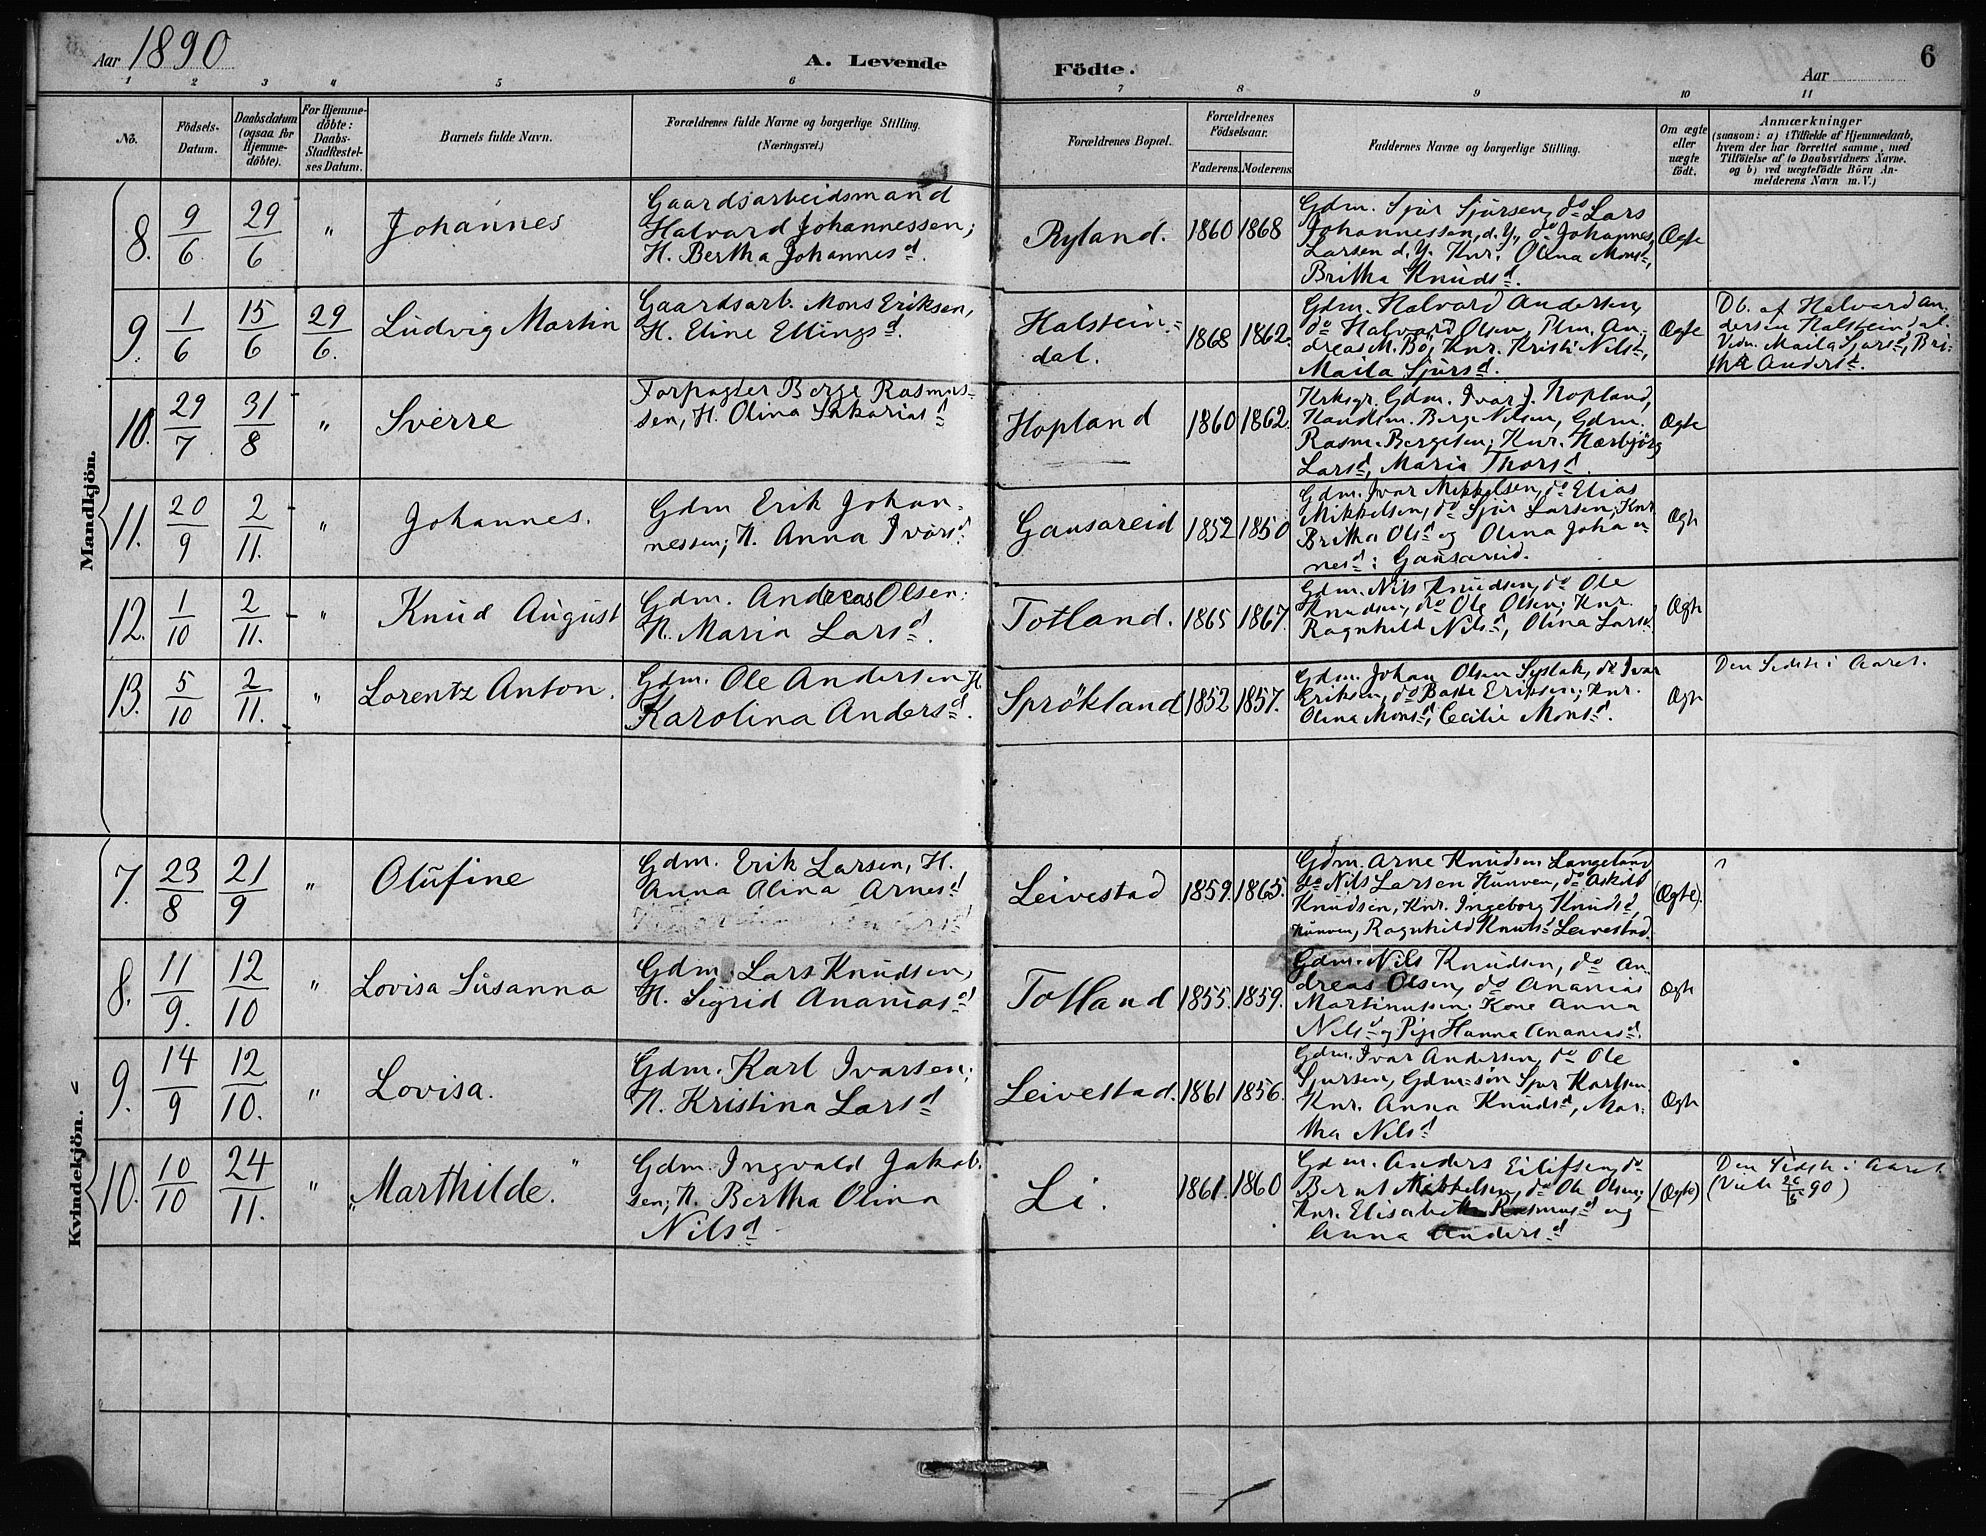 Aar 1890
A. Levende Födte.
Aar
6
1 2 3 4 5 6 7 8 9 10 11
No.
Födsels-
Datum.
Daabsdatum
(ogsaa for
Hjemme-
döbte).
For Hjemme-
döbte:
Daabs-
Stadfæstel-
ses Datum.
Barnets fulde Navn.
Forældrenes fulde Navne og borgerlige Stilling.
(Næringsvei.)
Forældrenes Bopæl.
Forældrenes
Födselsaar.
Faderens. Moderens.
Faddernes Navne og borgerlige Stilling.
Om ægte
eller
uægte
födt.
Anmærkninger
(saasom: a) i Tilfælde af Hjemmedaab,
hvem der har forrettet samme, med
Tilföielse af to Daabsvidners Navne.
og b) ved uægtefödte Börn An-
melderens Navn m. V.)
Mandkjön.
8. 9/6. 29/6 " Johannes
Gaardsarbeidsmand
Halvard Johannessen;
H. Bertha Johannesd.
Ryland. 1860 1868
Gdm. Sjur Sjursen, do Lars
Johannessen, d. Y., do Johannes
Larsen d. Y. Knr. Olina Monsd,
Britha Knudsd.
Ægte
9. 1/6 15/6 29/6. Ludvig Martin
Gaardsarb. Mons Eriksen,
H. Eline Ellingsd.
Halstein-
dal.
1868 1862.
Gdm. Halvard Andersen,
do Halvard Olsen, Plm. An-
dreas M. Bö; Knr. Kristi Nilsd,
Maila Sjursd.
Ægte
Db. af Halvard An-
dersen Halsteindal.
Vidn. Maila Sjursd, Bri-
tha Andersd.
10. 29/7. 31/8 " Sverre
Forpagter Berge Rasmus-
sen, H. Olina Sakariasd
Hopland 1860 1862.
Krksgr. Gdm. Ivar J. Hopland,
Handlm. Berge Nilsen, Gdm.
Rasm. Bergesen; Knr. Hærbjörg
Larsd, Maria Thorsd.
Ægte
11. 20/9 2/11. " Johannes.
Gdm Erik Johan-
nessen; H. Anna Ivarsd.
Gausareid 1852 1850
Gdm. Ivar Mikkelsen, do Elias
Mikkelsen, do Sjur Larsen; Knr
Britha Olsd og Olina Johan
nesd: Gausareid.
Ægte
12. 1/10 2/11. " Knud August
Gdm. Andreas Olsen;
H. Maria Larsd.
Totland. 1865 1867.
Gdm. Nils Knudsen, do Ole
Knudsen, do Ole Olsen; Knr.
Ragnhild Nilsd, Olina Larsd.
Ægte
13. 5/10 2/11. " Lorentz Anton.
Gdm. Ole Andersen H.
Karolina Andersd.
Sprökland 1852 1857.
Gdm. Johan Olsen Systak, do Ivar
Eriksen, do Eriksen; Knr.
Olina Monsd, Cecilie Monsd.
Ægte
Den Sidste i Aaret.
Kvindekjön.
7. 23/8 21/9 " Olufine
Gdm. Erik Larsen, H.
Anna Olina Arnesd
Leivestad 1859. 1865.
Gdm. Arne Knudsen Langeland
do Nils Larsen Kunven, do Askild
Knudsen, Knr. Ingeborg Knudsd,
Kunven, Ragnhild Knutsd Leivestad.
(Ægte).
8. 11/9. 12/10 " Lovisa Susanna
Gdm. Lars Knudsen,
H. Sigrid Ananiasd
Totland 1855. 1859.
Gdm. Nils Knudsen, do An
dreas Olsen, do Ananias
Martinussen; Kone Anna
Nilsd og Pige Hanna Ananiasd.
Ægte
9. 14/9 12/10. " Lovisa.
Gdm. Karl Ivarsen;
H. Kristina Larsd
Leivestad. 1861 1856.
Gdm. Ivar Andersen, do Ole
Sjursen, Gdm-søn Sjur Karlsen.
Knr. Anna Knudsd, Mar-
tha Nilsd
Ægte
10. 10/10 24/11. " Marthilde.
Gdm. Ingvald Jakob-
sen; H. Bertha Olina
Nilsd
Li. 1861. 1860
Gdm. Anders Eilifsen, do
Bernt Mikkelsen, do Ole Olsen;
Knr. Elisabeth Rasmusd og
Anna Andersd
(Ægte)
Den Sidste i Aaret
90)